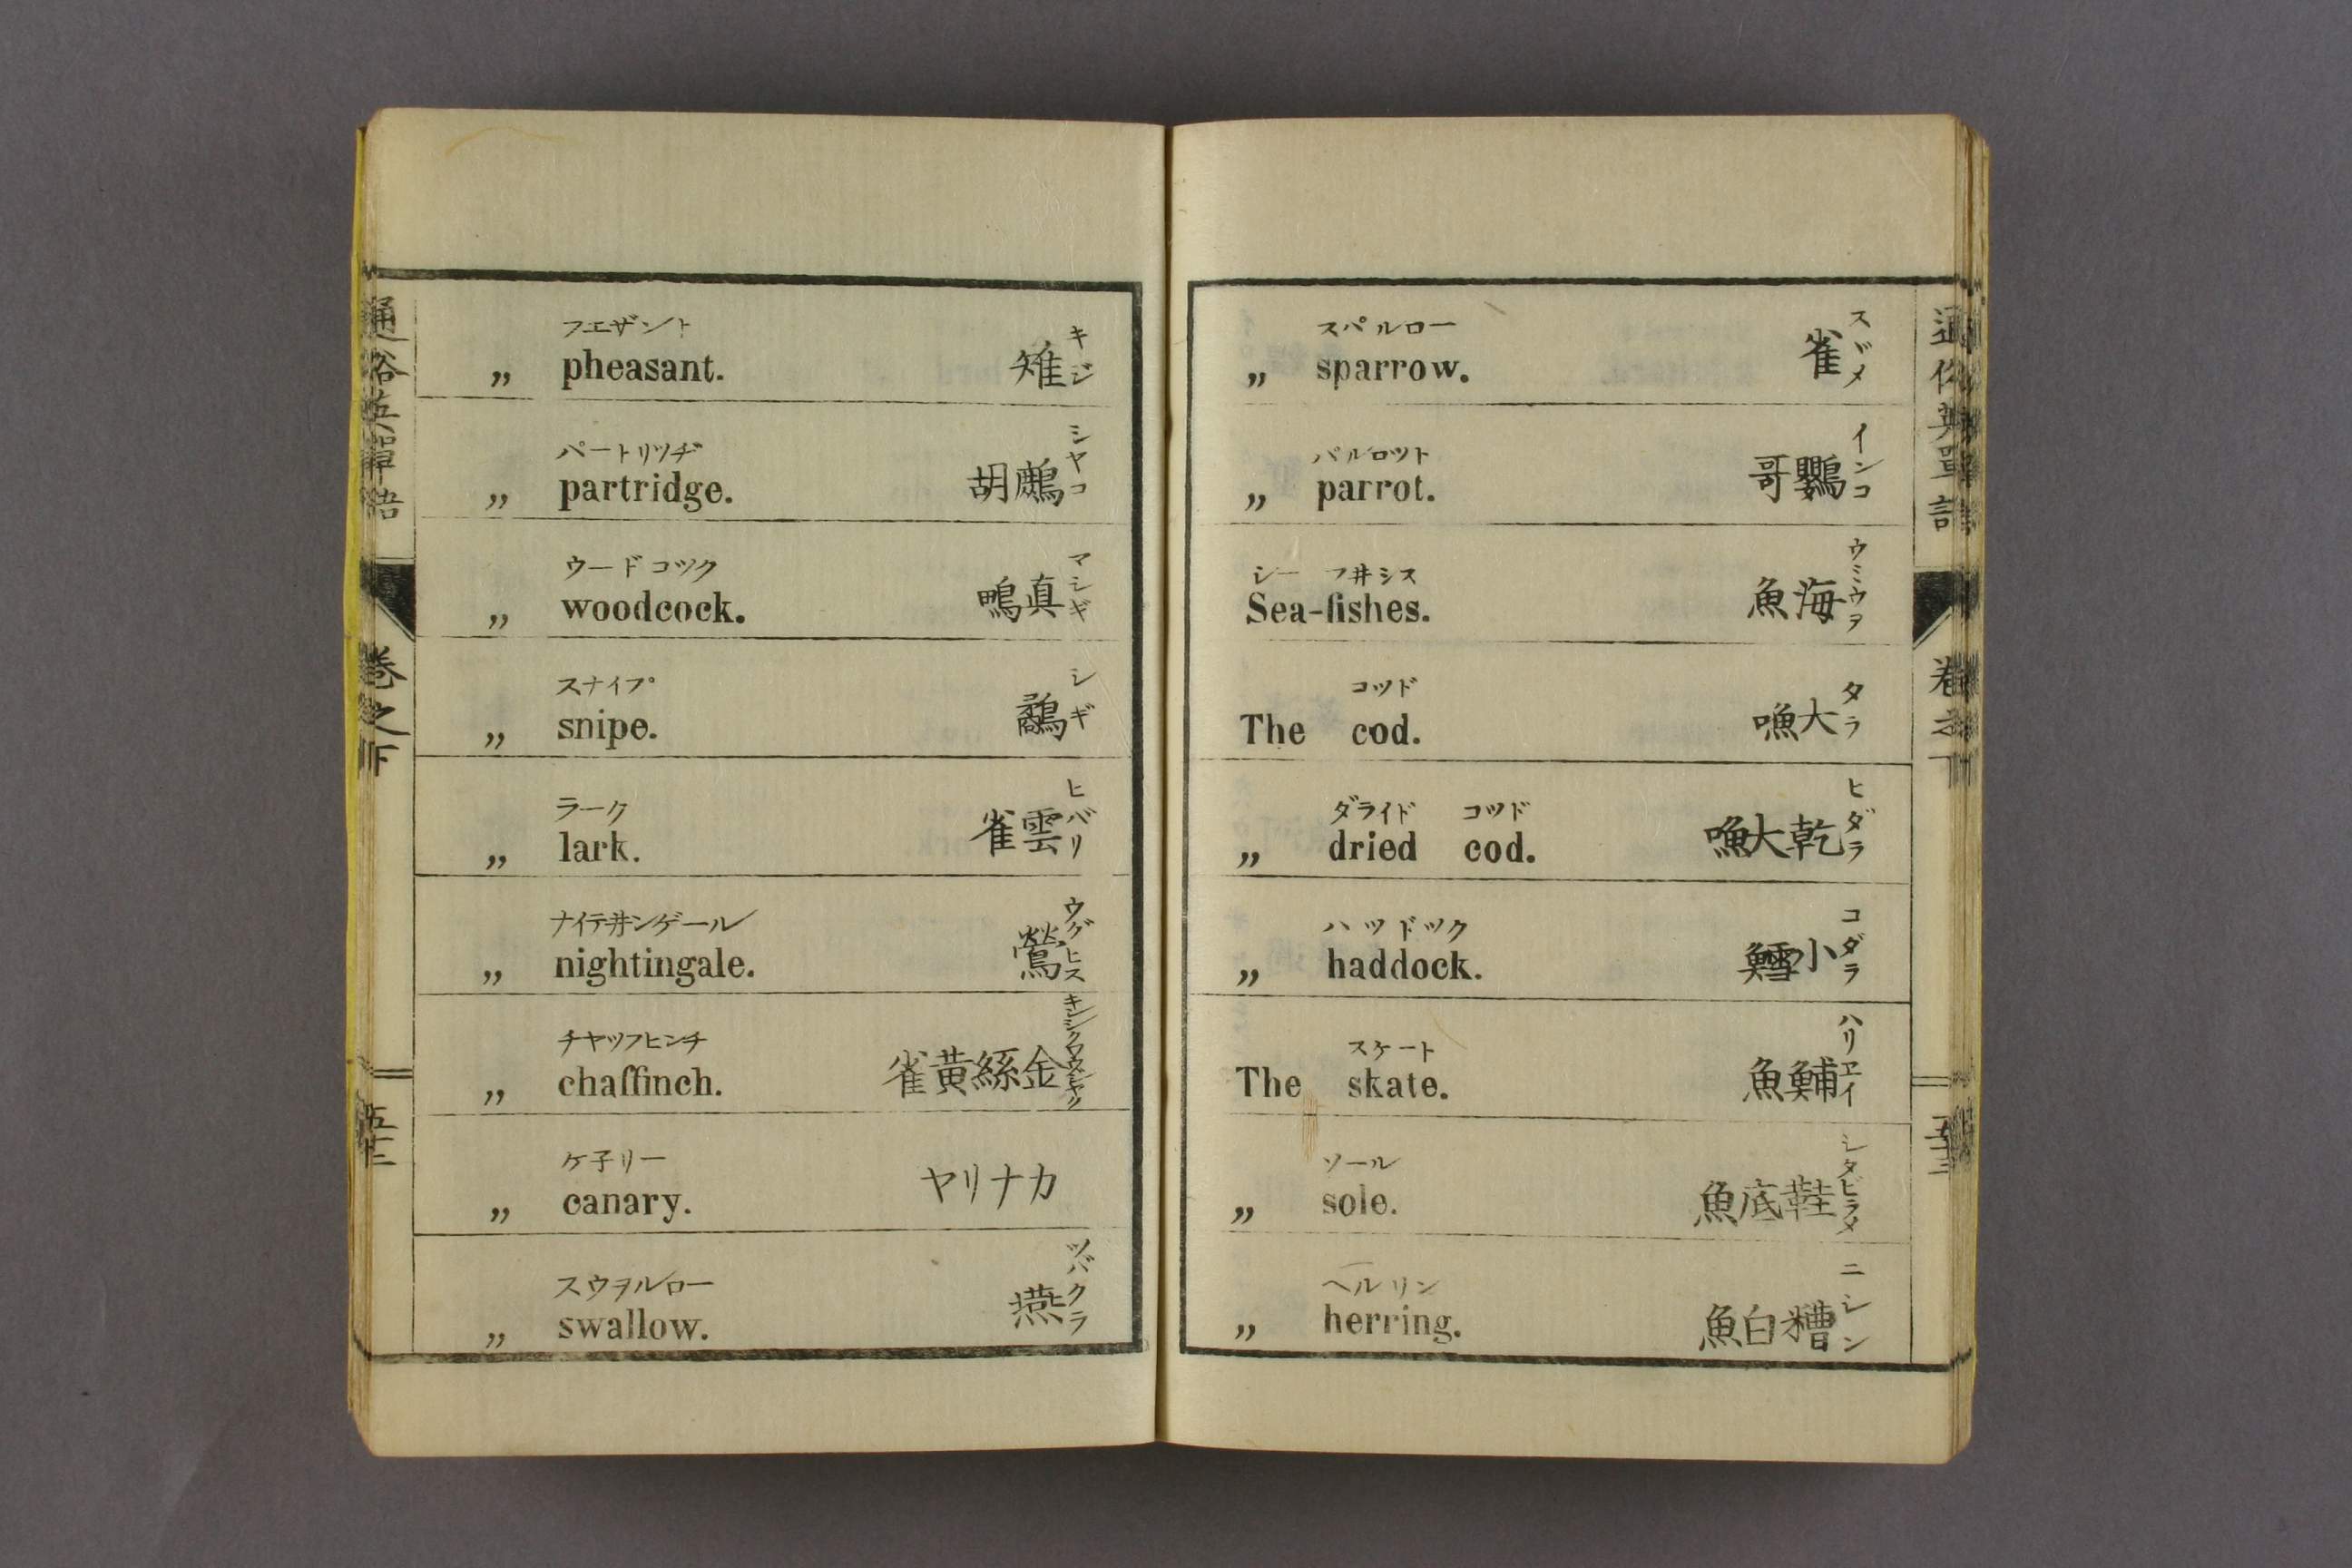 通俗英單語
卷之下
五十二
フエザント
„ pheasant. 雉 キジ
パートリツヂ
„ partridge. 胡鷓 シヤコ
ウードコツク
„ woodcock. 鴫真 マシギ
スナイプ
„ snipe. 鷸 シギ
ラーク
„ lark. 雀雲 ヒバリ
ナイテ井ンゲール
„ nightingale. 鶯 ウグヒス
チヤツフヒンチ
„ chaffinch. 雀黄絲金 キンシクワウジヤク
ケ子リー
„ canary. ヤリナカ
スウヲルロー
„ swallow. 燕 ツバクラ
スパルロー
„ sparrow. 雀 スヾメ
パルロツト
„ parrot. 哥鸚 インコ
シー フ井シス
Sea-fishes. 魚海 ウミウヲ
コツド
The cod. 大 タラ
ダライド コツド
„ dried cod. 大乾 ヒダラ
ハツドツク
„ haddock. 鱈小 コダラ
スケート
The skate. 魚鯆 ハリエイ
ソール
„ sole. 魚底鞋 シタビラメ
ヘルリン
„ herring. 魚白糟 ニシン
通俗英單語
卷之下